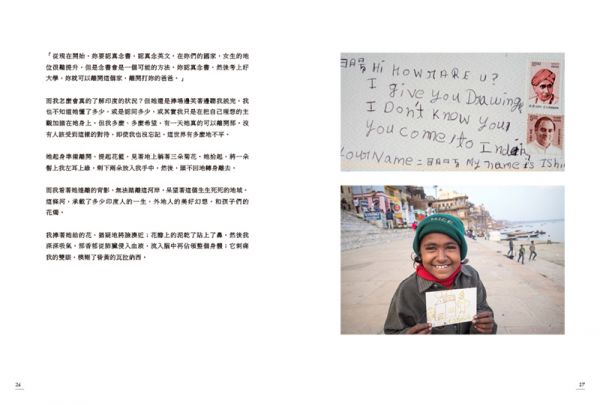 「從現在開始，妳要認真念書，認真念英文，在妳們的國家，女生的地
位很難提升，但是念書會是一個可能的方法。妳認真念書，然後考上好
大學，妳就可以離開這個家，離開打妳的爸爸。」
而我怎麼會真的了解印度的狀況？但她還是捧場邊笑著邊聽我說完。我
也不知道她懂了多少，或是認同多少，或其實我只是在把自己理想的主
觀加諸在她身上。但我多麼、多麼希望，有一天她真的可以離開那，沒
有人該受到這樣的對待，即使我也沒忘記，這世界有多麼地不平。
她起身準備離開，提起花籃，見著地上躺著三朵菊花。她拾起，將一朵
髻上我左耳上緣，剩下兩朵放入我手中，然後，頭不回地轉身離去。
而我看著她離去的背影，無法踏離這河岸，呆望著這個生生死死的地域。
這條河，承載了多少印度人的一生，外地人的美好幻想，和孩子們的
花燭。
我捧著她給的花，猶疑地將臉湊近；花瓣上的泥乾了貼上了鼻，然後我
深深吸氣，那香郁從肺臟侵入血液，流入腦中再佔領整個身體；它刺痛
我的雙眼，模糊了昏黃的瓦拉納西。
Hi HOW ARE U?
I give you Drawing
I Don't know your
you come to India
your Name = My name is Ishi
26
27